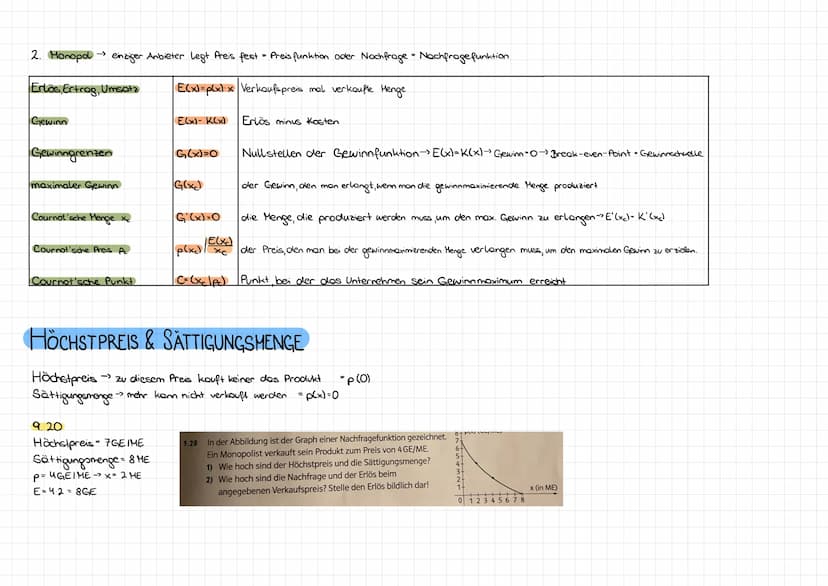 2. Monopol → einziger Anbieter legt Preis fest = Preisfunktion oder Nachfrage = Nachfragefunktion
Erlös, Ertrag, Umsatz E(x)=p(x)·x Verkaufspreis mal verkaufte Menge
Gewinn E(x)-K(x) Erlös minus Kosten
Gewinngrenzen G(x)=0 Nullstellen der Gewinnfunktion → E(x)=K(x) → Gewinn=0 → Break-even-Point = Gewinnschwelle
maximaler Gewinn G(xc) der Gewinn, den man erlangt, wenn man die gewinnmaximierende Menge produziert
Cournot'sche Menge xc G'(x)=0 die Menge, die produziert werden muss, um den max. Gewinn zu erlangen → E'(xc)=K'(xc)
Cournot'sche Preis pc p(xc) / E(xc)/xc der Preis, den man bei der gewinnmaximierenden Menge verlangen muss, um den maximalen Gewinn zu erzielen.
Cournot'sche Punkt C=(xc|pc) Punkt, bei der das Unternehmen sein Gewinnmaximum erreicht
HÖCHSTPREIS & SÄTTIGUNGSMENGE
Höchstpreis → zu diesem Preis kauft keiner das Produkt = p(0)
Sättigungsmenge → mehr kann nicht verkauft werden = p(x)=0
9.20
Höchstpreis = 7GE/ME
Sättigungsmenge = 8 ME
p = 4GE/ME → x = 2 ME
E = 4·2 = 8GE
In der Abbildung ist der Graph einer Nachfragefunktion gezeichnet.
Ein Monopolist verkauft sein Produkt zum Preis von 4 GE/ME.
1) Wie hoch sind der Höchstpreis und die Sättigungsmenge?
2) Wie hoch sind die Nachfrage und der Erlös beim
angegebenen Verkaufspreis? Stelle den Erlös bildlich dar!
7
6
5
4
3
2
1
x (in ME)
0 1 2 3 4 5 6 7 8